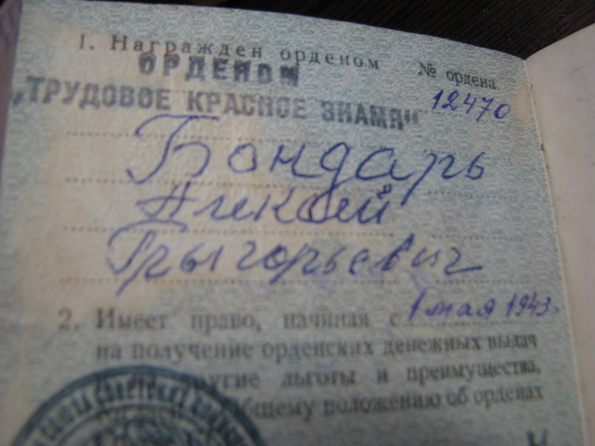 1. Награжден орденом № ордена
ОРДЕНОМ
„ТРУДОВОЕ КРАСНОЕ ЗНАМЯ“ 12470
Бондарь
Алексей
Грыгорьевич
2. Имеет право, начиная с 1 мая 1943г
на получение орденских денежных выдач
другие льготы и преимущества,
общему положению об орденах